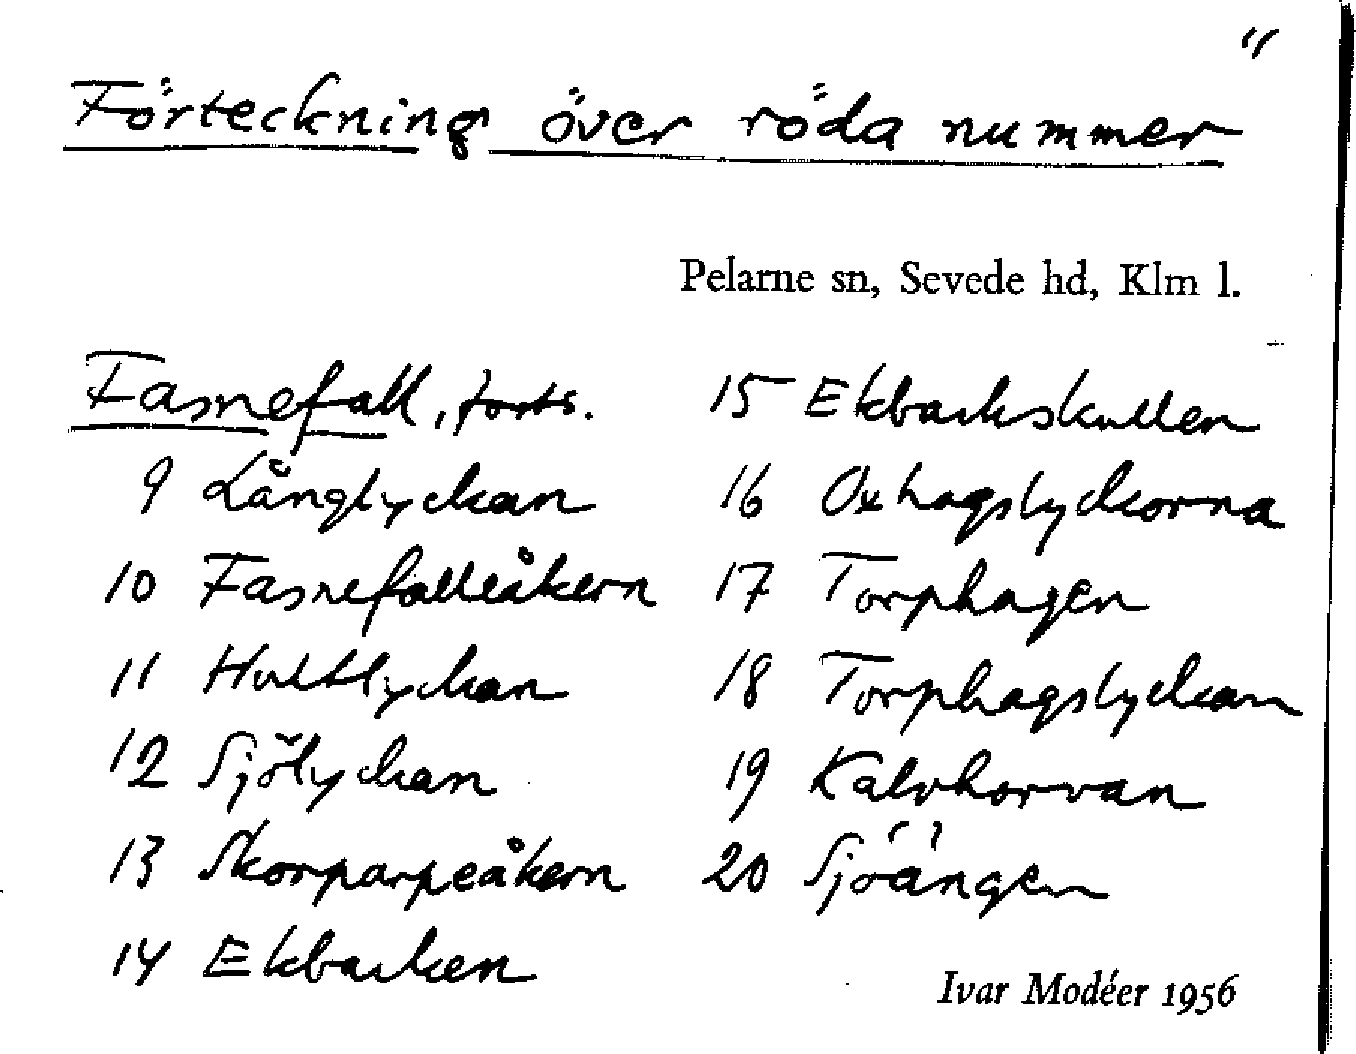 "
Förteckning över röda nummer
Pelarne sn, Sevede hd, Klm l.
Fasnefall, forts.
9 Långlyckan
10 Fasnefalleåkern
11 Hultlyckan
12 Sjölyckan
13 Skorparpeåkern
14 Ekbacken
15 Ekbackskullen
16 Oxhagslyckorna
17 Torphagen
18 Torphagslyckan
19 Kalvhorvan
20 Sjöängen
Ivar Modéer 1956